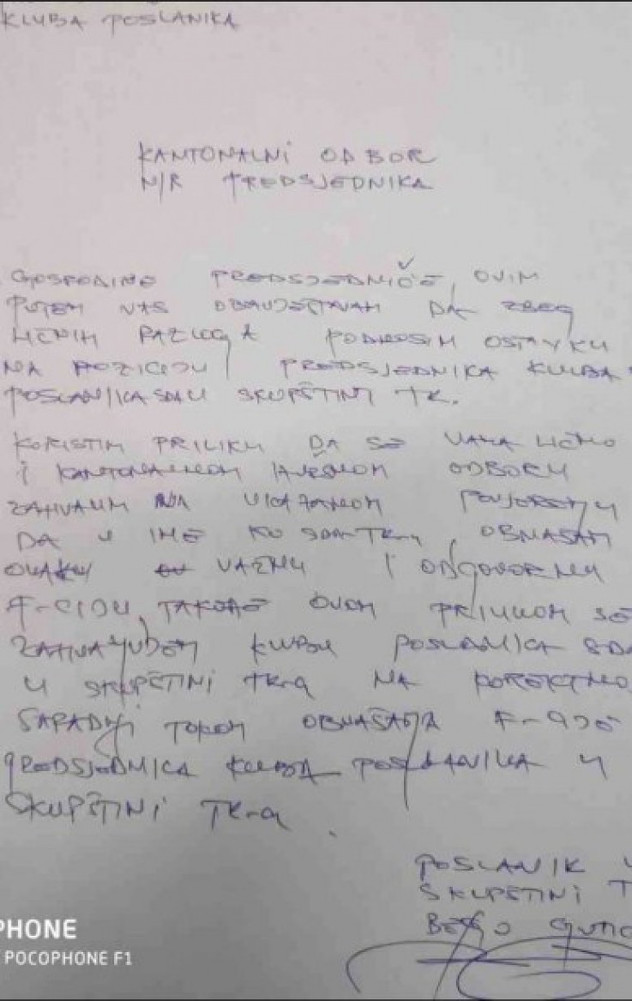 KLUBA POSLANIKA
KANTONALNI ODBOR
N/R PREDSJEDNIKA
GOSPODINE PREDSJEDNIČE, OVIM
PUTEM VAS OBAVJEŠTAVAM DA ZBOG
LIČNIH RAZLOGA PODNOSIM OSTAVKU
NA POZICIJU PREDSJEDNIKA KLUBA
POSLANIKA SDA U SKUPŠTINI TK.
KORISTIM PRILIKU DA SE VAMA LIČNO
I KANTONALNOM ODBORU
ZAHVALIM NA UKAZANOM POVJERENJU
DA U IME KO SDA TK-a, OBNAŠAM
OVAKU VAŽNU I ODGOVORNU
F-CIJU, TAKOĐE OVOM PRILIKOM SE
ZAHVALJUJEM KLUBU POSLANICA SDA
U SKUPŠTINI TK-a NA KOREKTNOJ
SARADNJI TOKOM OBNAŠANJA F-CIJE
PREDSJEDNICA KLUBA POSLANIKA U
SKUPŠTINI TK-a.
POSLANIK U
SKUPŠTINI T
GUTIĆ
PHONE
POCOPHONE F1